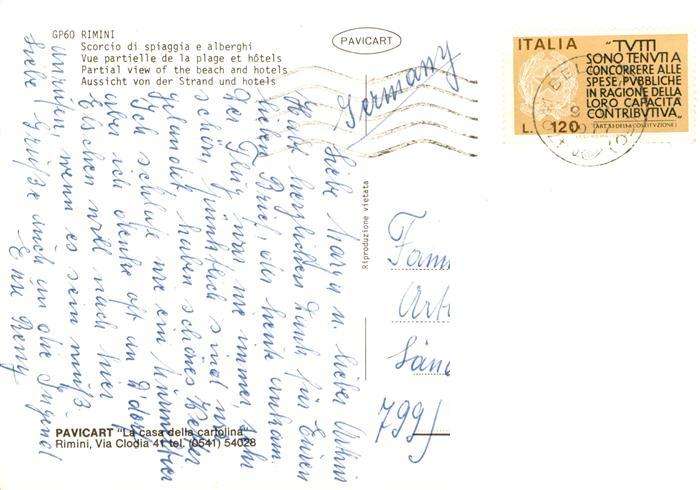 GP60 RIMINI
Scorcio di spiaggia e alberghi
Vue partielle de la plage et hôtels
Partial view of the beach and hotels
Aussicht von der Strand und hotels
PAVICART
Germany
ITALIA
"TUTTI
SONO TENUTI A
CONCORRERE ALLE
SPESE PUBBLICHE
IN RAGIONE DELLA
LORO CAPACITÀ
CONTRIBUTIVA"
(ART. 53 DELLA COSTITUZIONE)
L. 120
Liebe Maria u. lieber Arthur
Habt herzlichen Dank für Euren
lieben Brief, der heute ankam.
Der Flug war wie immer, sehr
schön, pünktlich sind wir
gelandet, haben schönes Wetter
Ich schlafe wie ein Murmeltier
aber ich denke oft an
Elschen will nach hier
anrufen, wenn es sein muß.
Liebe Grüße auch an die Jugend
Eure
Riproduzione vietata
Fam
Arth
Län
799
PAVICART "La casa della cartolina"
Rimini, Via Clodia 41 tel. (0541) 54028